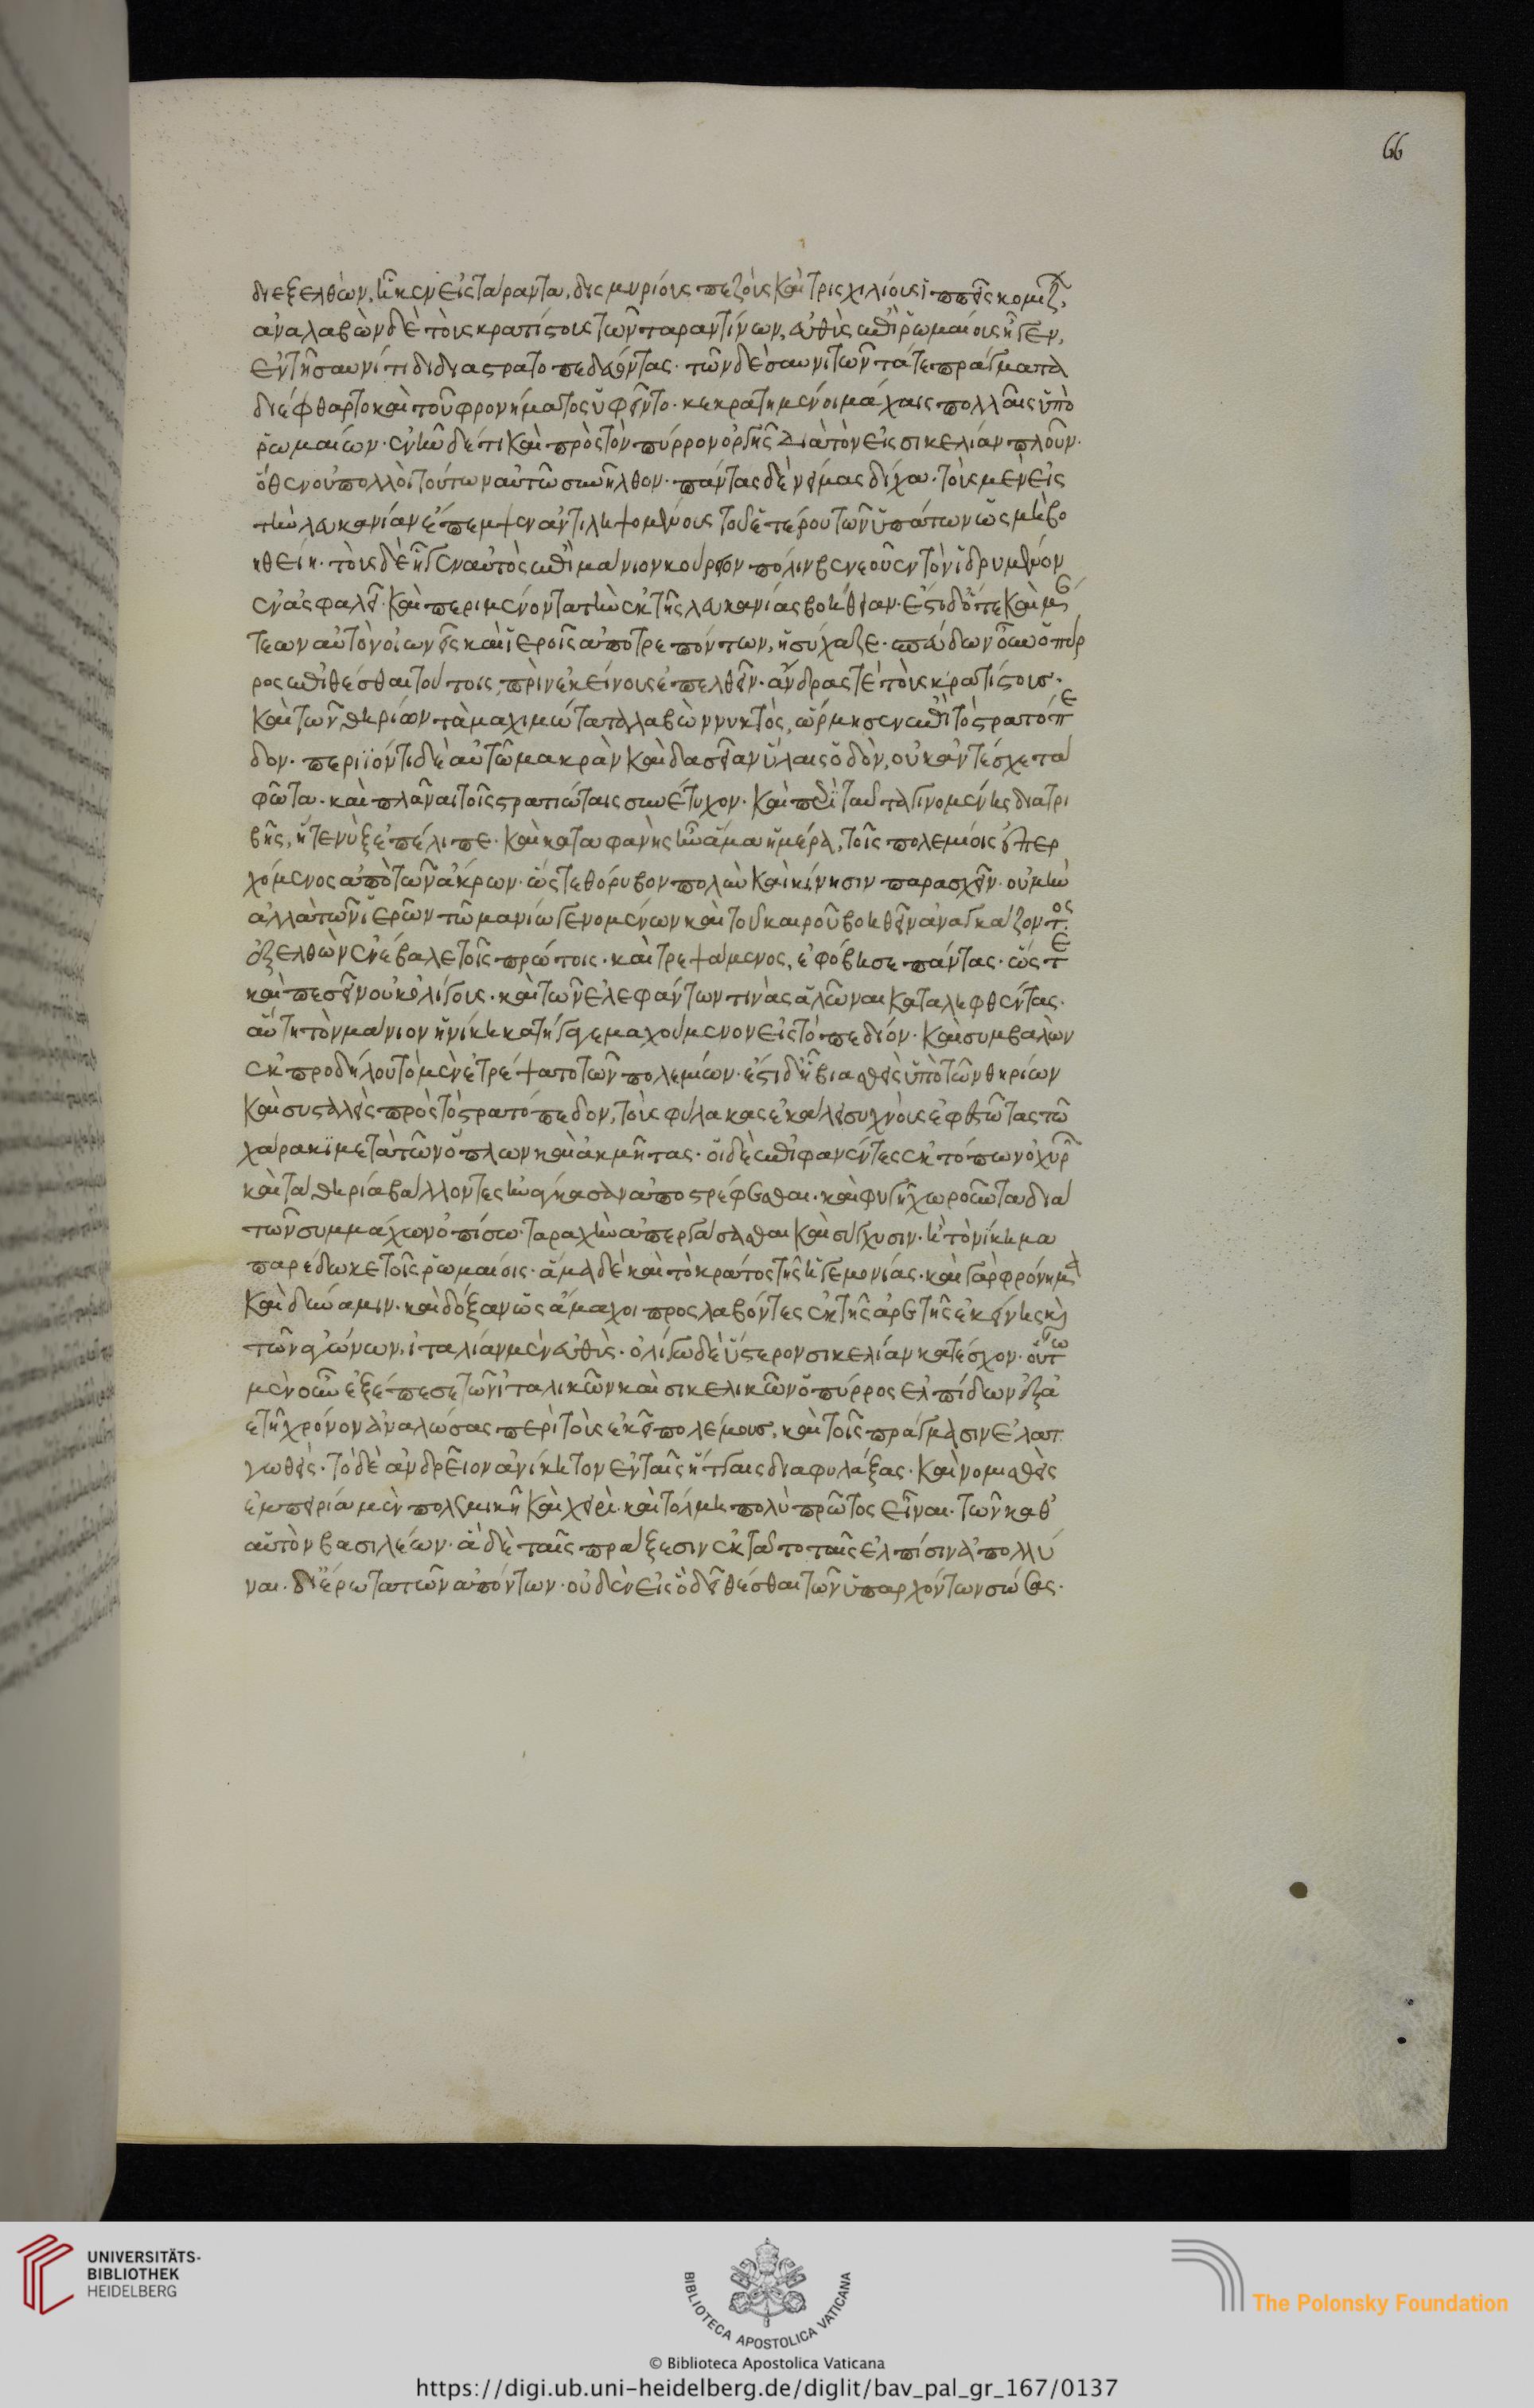 66
διεξελθὼν, ἧκεν εἰς τάραντα, δισμυρίους πεζοὺς καὶ τρισχιλίους ἱππεῖς κομίζων,
ἀναλαβὼν δὲ τοὺς κρατίστους τῶν ταραντίνων, αὖθις ἐπὶ ῥωμαίους ἦγεν,
ἐν τῇ σαυνίτιδι διαστρατοπεδεύοντας. τῶν δὲ σαυνιτῶν τά τε πράγματα
διέφθαρτο καὶ τοῦ φρονήματος ὑφεῖντο. κεκρατημένοι μάχαις πολλαῖς ὑπὸ
ῥωμαίων. ἐνῆν δέ τι καὶ πρὸς τὸν πύρρον ὀργῆς διὰ τὸν εἰς σικελίαν πλοῦν.
ὅθεν οὐ πολλοὶ τούτων αὐτῶ συνῆλθον. πάντας δὲ νείμας δίχα. τοὺς μὲν εἰς
τὴν λευκανίαν ἔπεμψεν ἀντιληψομένους τοῦ ἑτέρου τῶν ὑπάτων ὡς μὴ βο
ηθείη. τοὺς δὲ ἦγεν αὐτὸς ἐπὶ μάνιον κούριον πόλιν βενεουεντὸν ἱδρυμένον
ἐν ἀσφαλεῖ. καὶ περιμένοντα τὴν ἐκ τῆς λευκανίας βοήθειαν. ἔστι δ' ὅτε καὶ μά
τεων αὐτὸν οἰωνοῖς καὶ ἱεροῖς ἀποτρεπόντων, ἡσύχαζε. σπεύδων οὖν ὁ πύρ
ρος ἐπιθέσθαι τούτοις, πρὶν ἐκείνους ἐπελθεῖν. ἄνδρας τὲ τοὺς κρατίστους.
καὶ τῶν θηρίων τὰ μαχιμώτατα λαβὼν νυκτὸς, ὥρμησεν ἐπὶ τὸ στρατόπε
δον. περιϊόντι δὲ αὐτῶ μακρὰν καὶ δασεῖαν ὕλαις ὁδὸν, οὐκ ἀντέσχε τὰ
φῶτα. καὶ πλάναι τοῖς στρατιώταις συνέτυχον. καὶ περὶ ταῦτα γινομένης διατρι
βῆς, ἥ τε νὺξ ἐπέλιπε. καὶ καταφανὴς ἦν ἅμα ἡμέρα, τοῖς πολεμίοις ἐπερ
χόμενος ἀπὸ τῶν ἄκρων. ὥστε θόρυβον πολὺν καὶ κίνησιν παρασχεῖν. οὐ μὴν
ἀλλὰ τῶν ἱερῶν τῶ μανίω γενομένων καὶ τοῦ καιροῦ βοηθεῖν ἀναγκάζοντος.
ἐξελθὼν ἐνέβαλε τοῖς πρώτοις. καὶ τρεψάμενος, ἐφόβησε πάντας. ὥστε
καὶ πεσεῖν οὐκ ὀλίγους. καὶ τῶν ἐλεφάντων τινὰς ἁλῶναι καταληφθέντας.
αὕτη τὸν μάνιον ἡ νίκη κατήγαγε μαχούμενον εἰς τὸ πεδίον. καὶ συμβαλὼν
ἐκ προδήλου τὸ μὲν ἐτρέψατο τῶν πολεμίων. ἔστι δ' ᾗ βιασθεὶς ὑπὸ τῶν θηρίων
καὶ συσταλεὶς πρὸς τὸ στρατόπεδον, τοὺς φύλακας ἐκάλει συχνοὺς ἐφεστῶτας τῶ
χάρακι μετὰ τῶν ὅπλων καὶ ἀκμῆτας. οἱ δὲ ἐπιφανέντες ἐκ τόπων ὀχυρῶν
καὶ τὰ θηρία βάλλοντες ἠνάγκασαν ἀποστρέφεσθαι. καὶ φυγῇ χωροῦντα διὰ
τῶν συμμάχων ὀπίσω. ταραχὴν ἀπεργάσασθαι καὶ σύγχυσιν. ἣ τὸ νίκημα
παρέδωκε τοῖς ῥωμαίοις. ἅμα δὲ καὶ τὸ κράτος τῆς ἡγεμονίας. καὶ γὰρ φρόνημα
καὶ δύναμιν. καὶ δόξαν ὡς ἄμαχοι προσλαβόντες ἐκ τῆς ἀρετῆς ἐκείνης καὶ
τῶν ἀγώνων, ἰταλίαν μὲν εὐθὺς. ὀλίγω δὲ ὕστερον σικελίαν κατέσχον. οὕτω
μὲν οὖν ἐξέπεσε τῶν ἰταλικῶν καὶ σικελικῶν ὁ πύρρος ἐλπίδων ἑξα
ετῆ χρόνον ἀναλώσας περὶ τοὺς ἐκεῖ πολέμους, καὶ τοῖς πράγμασιν ἐλατ
τωθεὶς. τὸ δὲ ἀνδρεῖον ἀνίκητον ἐν ταῖς ἥτταις διαφυλάξας. καὶ νομισθεὶς
ἐμπειρία μὲν πολεμικῇ καὶ χειρὶ. καὶ τόλμη πολὺ πρῶτος εἶναι. τῶν καθ'
αὑτὸν βασιλέων. ἃ δὲ ταῖς πράξεσιν ἐκτᾶτο ταῖς ἐλπίσιν ἀπολλύ
ναι. δι' ἔρωτα τῶν ἀπόντων. οὐδὲν εἰς ὃ δεῖ θέσθαι τῶν ὑπαρχόντων σώσας.
UNIVERSITÄTS-
BIBLIOTHEK
HEIDELBERG
BIBLIOTECA APOSTOLICA VATICANA
The Polonsky Foundation
© Biblioteca Apostolica Vaticana
https://digi.ub.uni-heidelberg.de/diglit/bav_pal_gr_167/0137